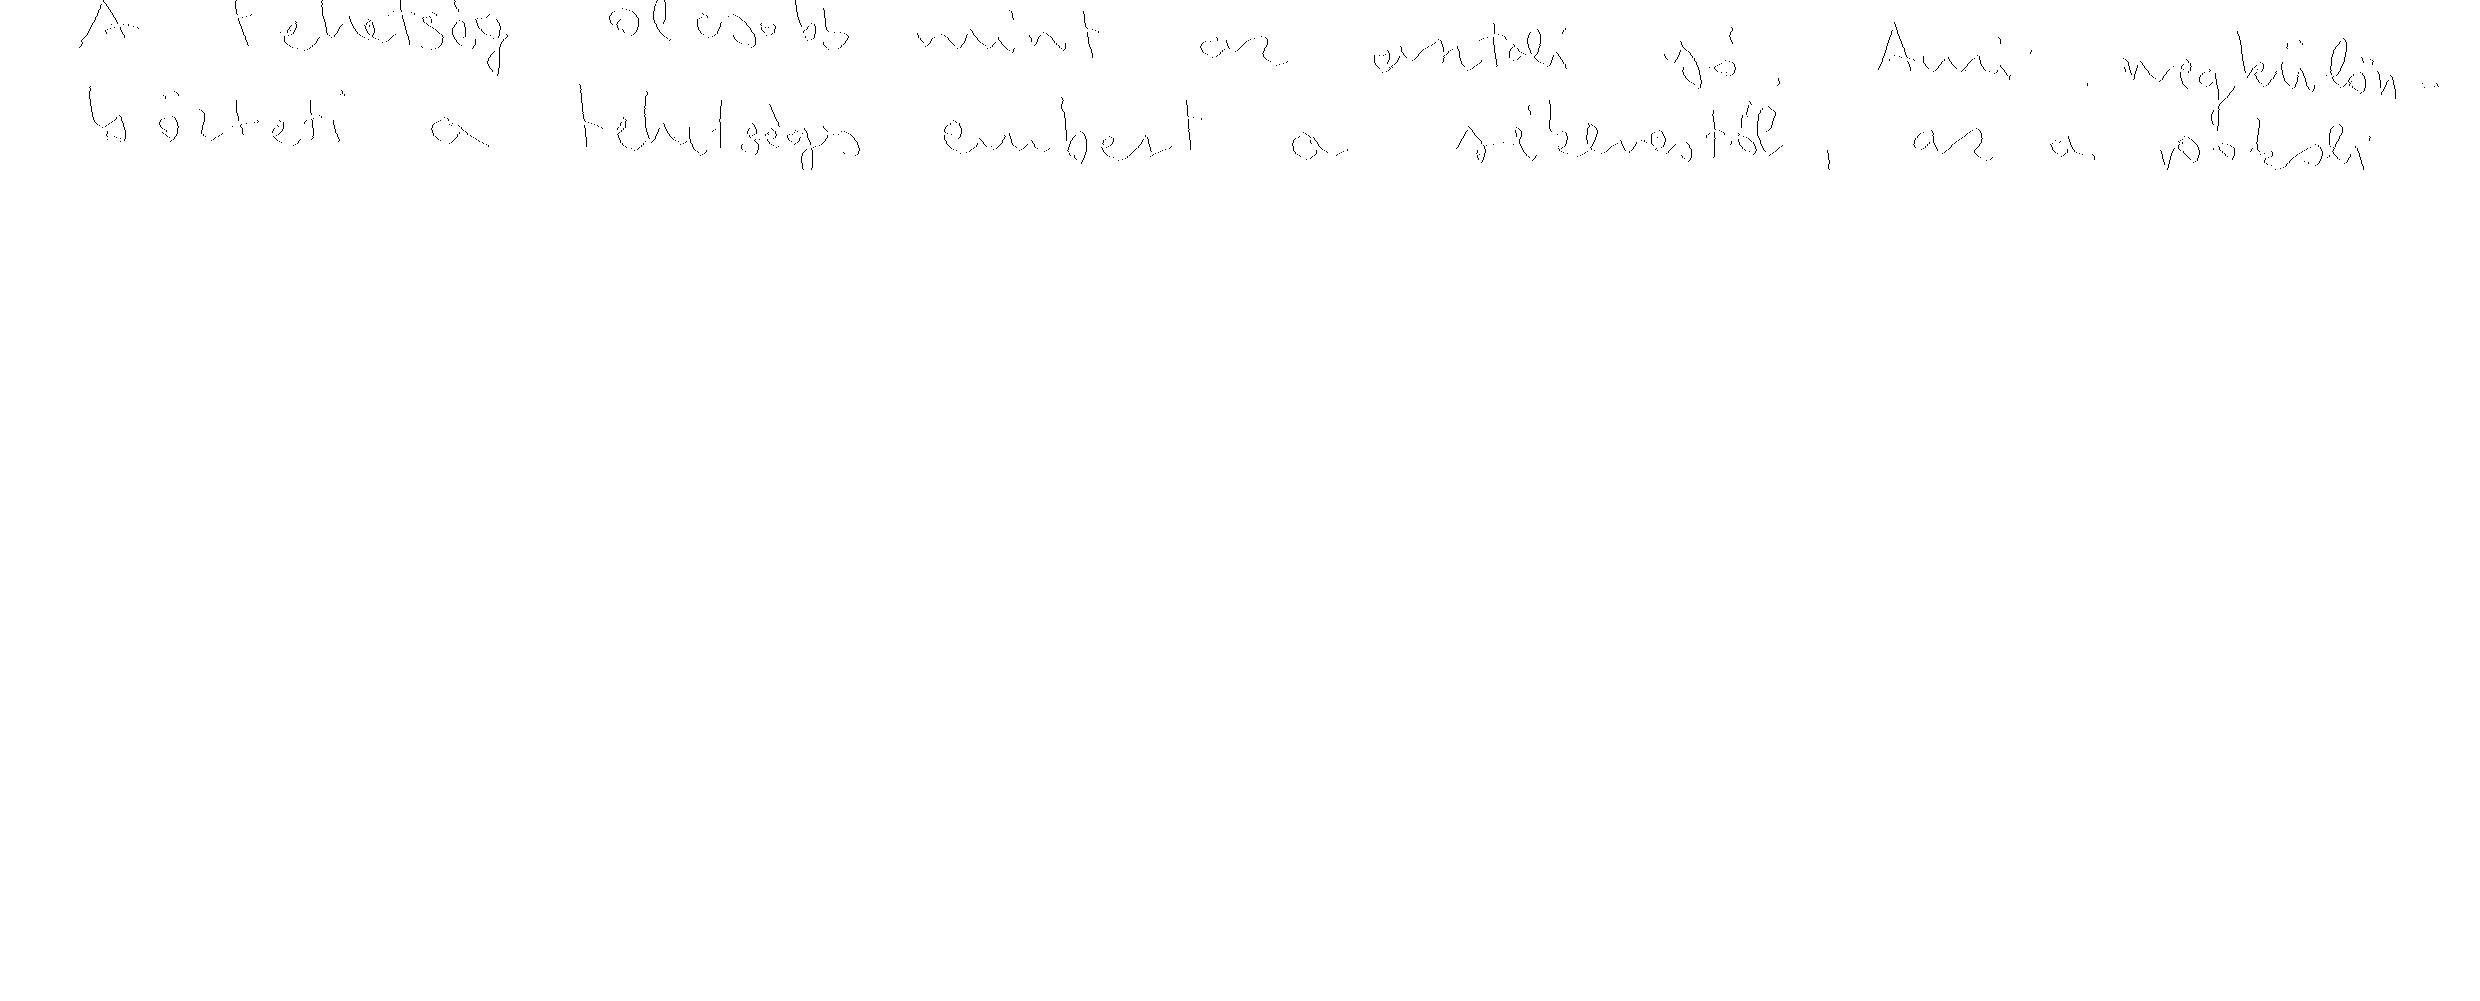 A tehetség olcsóbb mint az asztali só. Ami megkülön-
bözteti a tehetséges embert a sikerestől, az a rakás